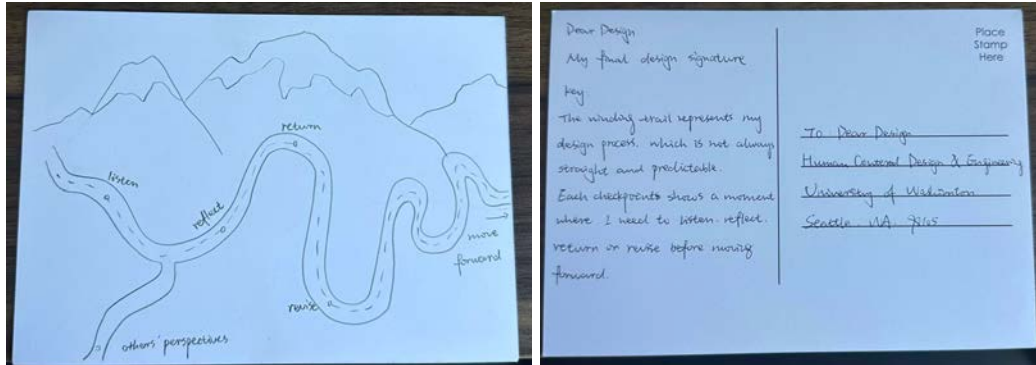 return
listen
reflect
move
forward
revise
others' perspectives
Dear Design
My final design signature
key
The winding trail represents my
design process. which is not always
straight and predictable.
Each checkpoints shows a moment
where I need to listen. reflect.
return or revise before moving
forward.
Place
Stamp
Here
To Dear Design
Human Centered Design &
University of
Seattle. WA. 98105